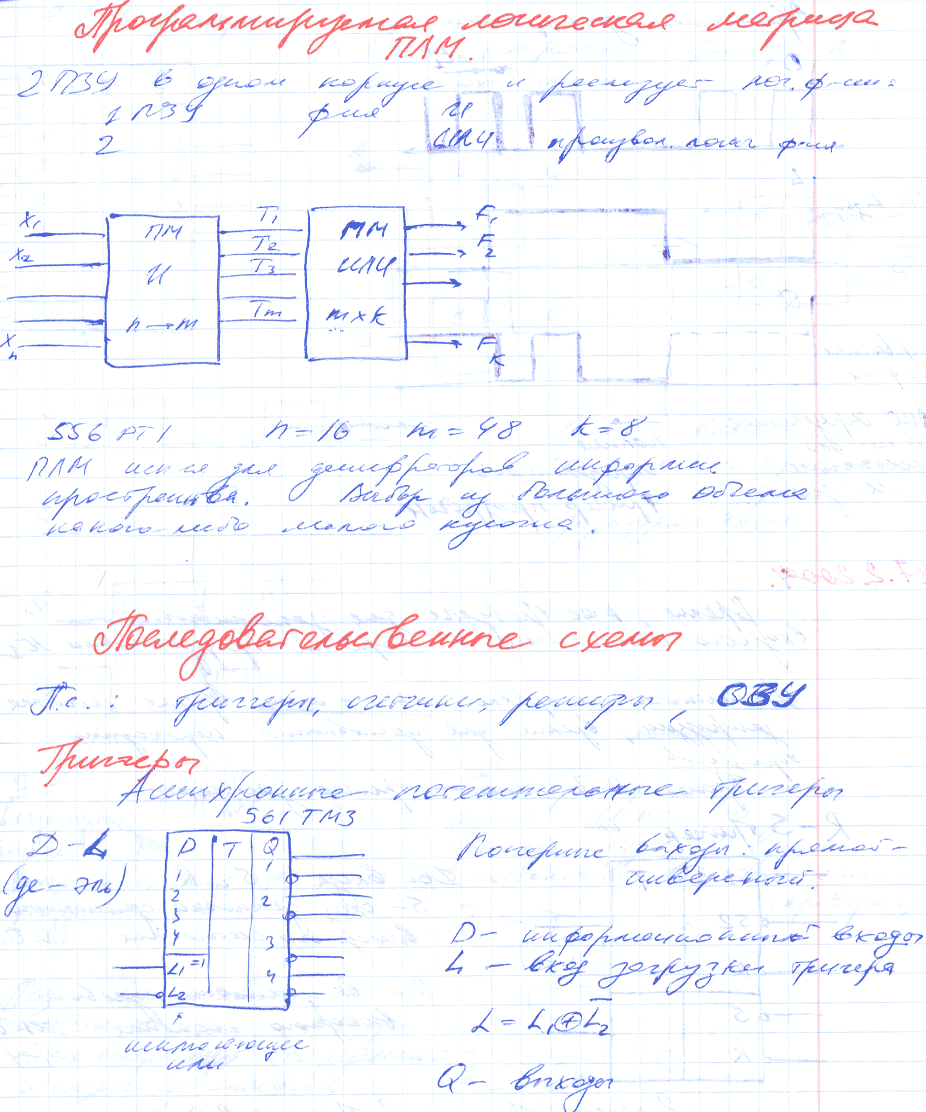 Программируемая логическая матрица
ПЛМ.
2 ПЗУ в одном корпусе и реализует лог. ф-ции:
1 ПЗУ ф-ия И
2 ИЛИ произвол. логич ф-ия
X1 ПМ T1 ПМ F1
X2 И T2 ИЛИ F2
T3
n → m Tm m x k
Xn Fk
556 РТ1 n=16 m=48 k=8
ПЛМ исп-ся для дешифраторов информац.
пространства. Выбор из большого объема
какого либо малого кусочка.
Последовательственные схемы
П.с.: триггеры, счетчики, регистры, ОЗУ
Тригеры
Асинхронные потенциальные тригеры
561 ТМ3
D-L
(де-эль)
D T Q
1 1
2 2
3
4 3
L1 =1 4
L2
исключающее
или
Поперные выходы: прямой-
инверсный.
D - информационный входы
L - вход загрузки тригера
L = L1 ⊕ L̅2
Q - выходы